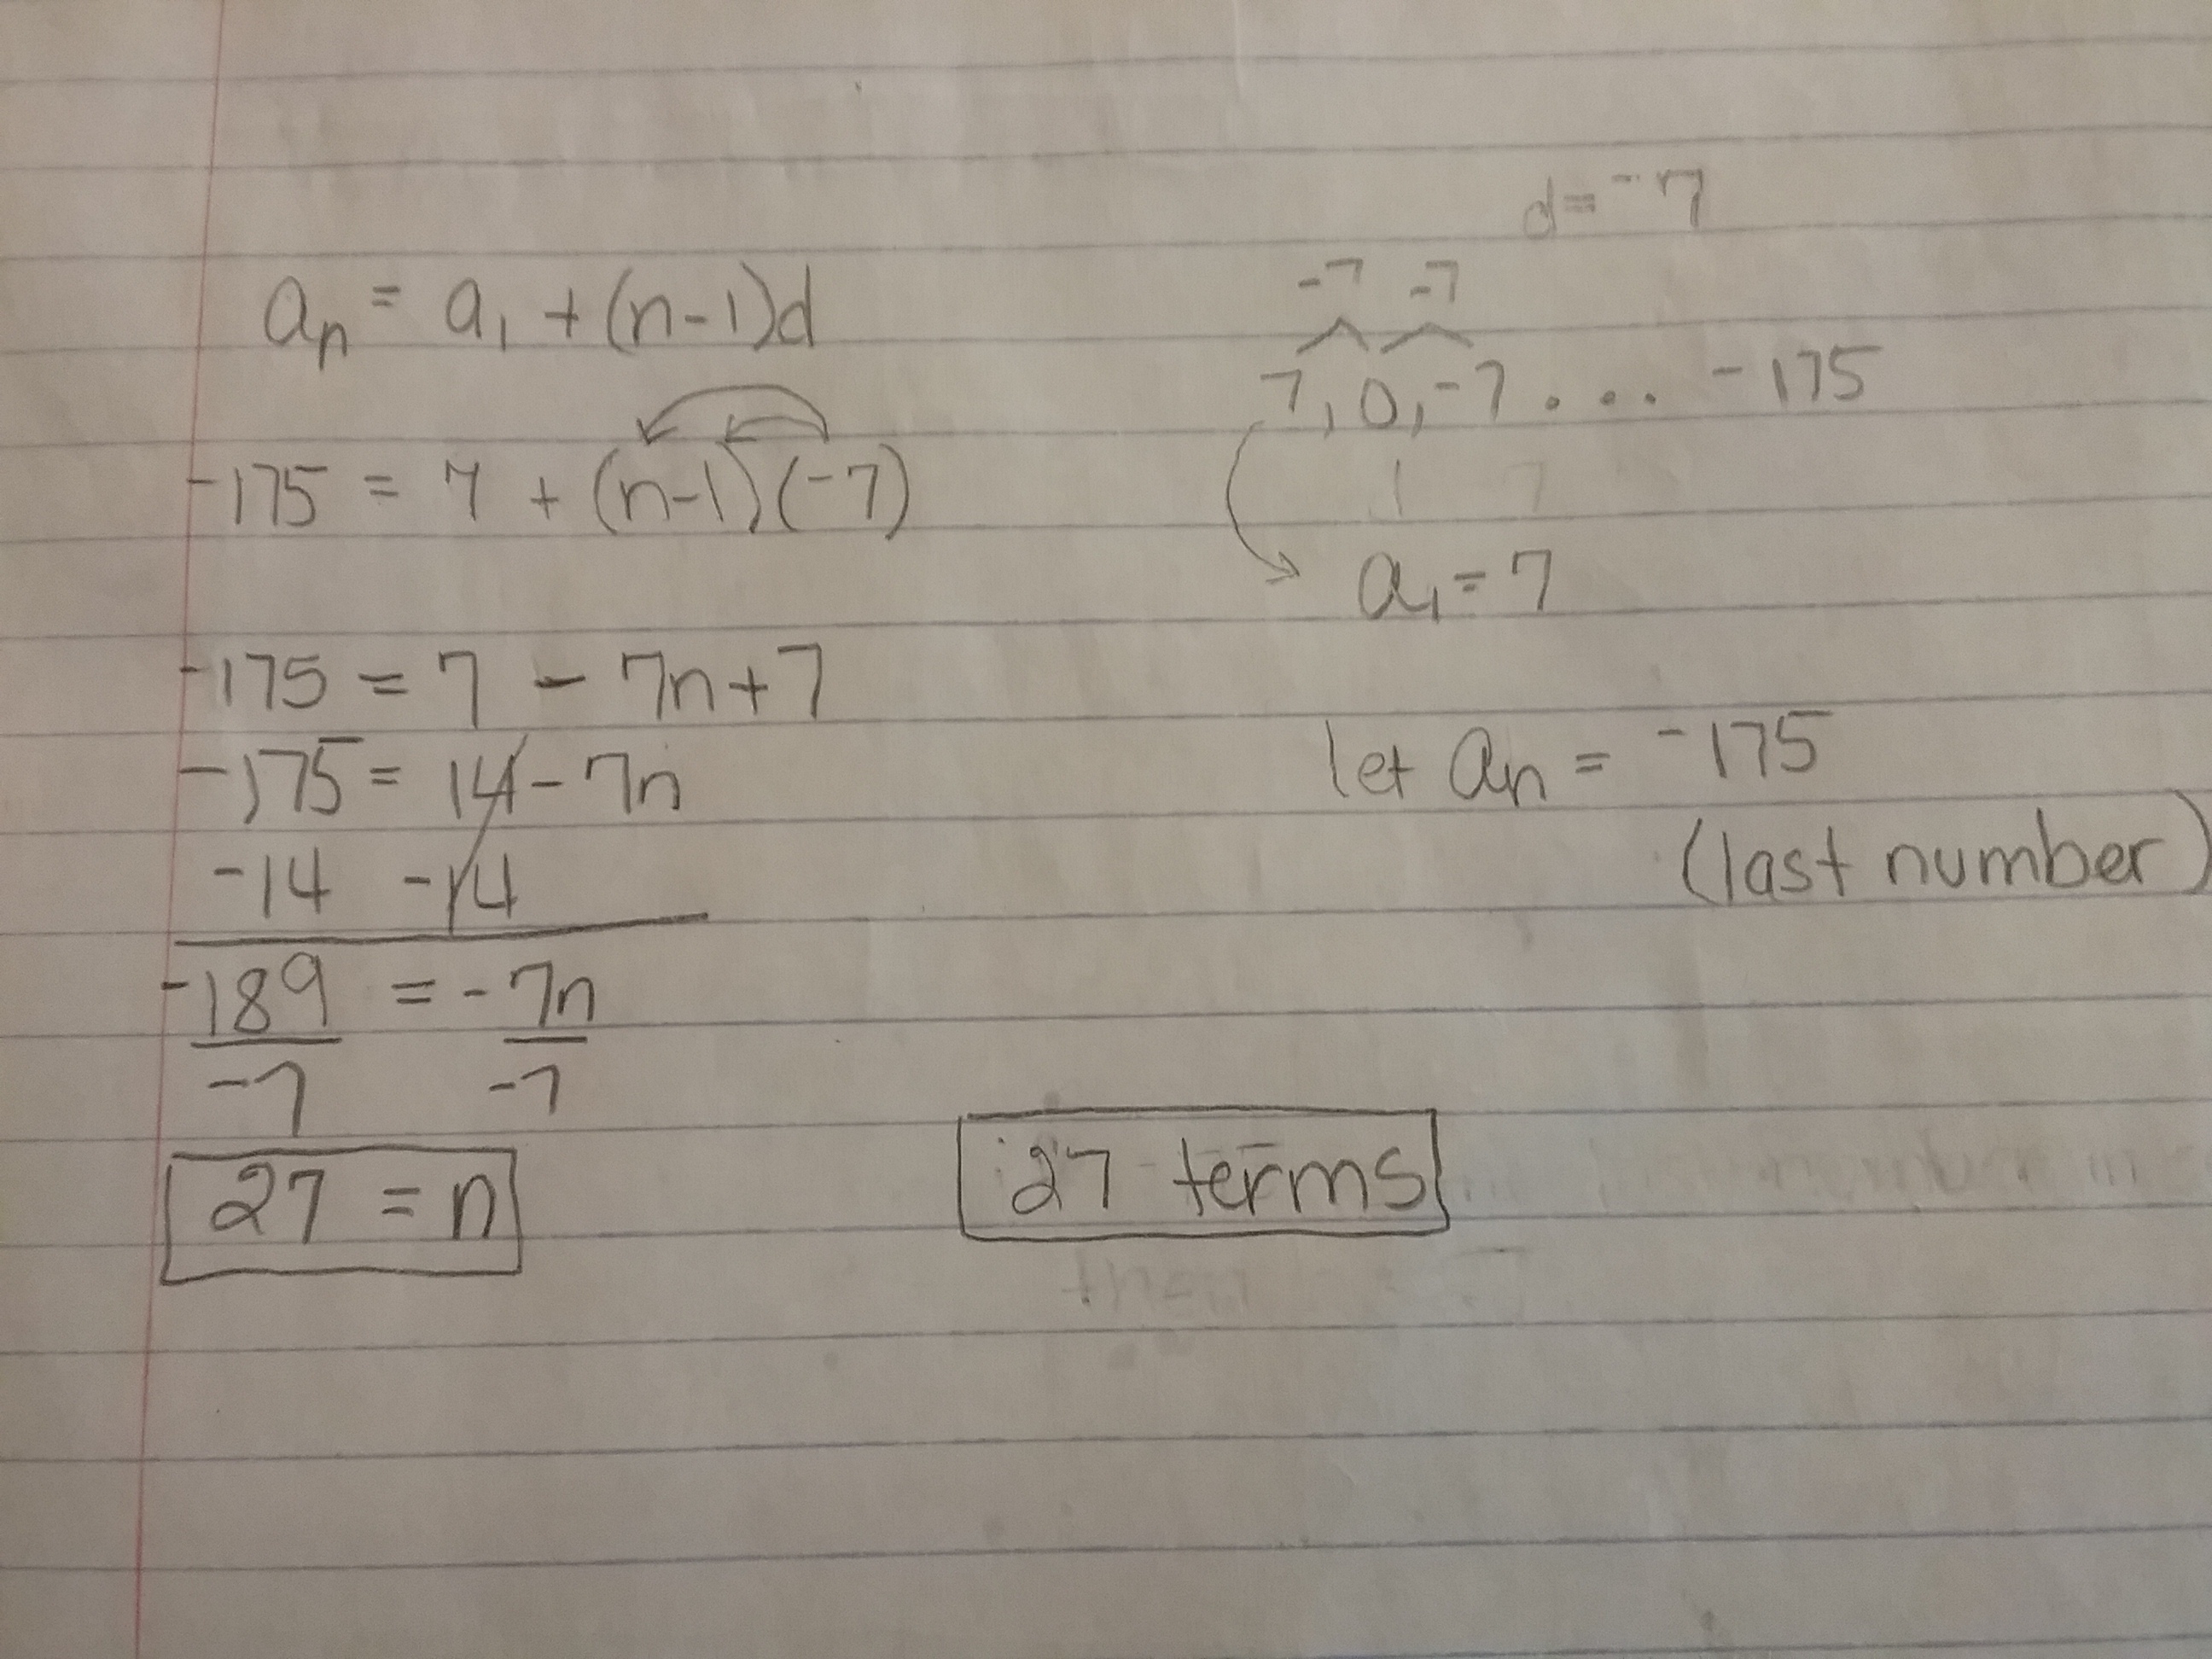 aₙ = a₁ + (n-1)d
-175 = 7 + (n-1)(-7)
-175 = 7 - 7n + 7
-175 = 14 - 7n
-14 -14
-189 = -7n
-7 -7
27 = n
d = -7
-7 -7
7, 0, -7 . . . -175
a₁ = 7
let aₙ = -175
(last number)
27 terms